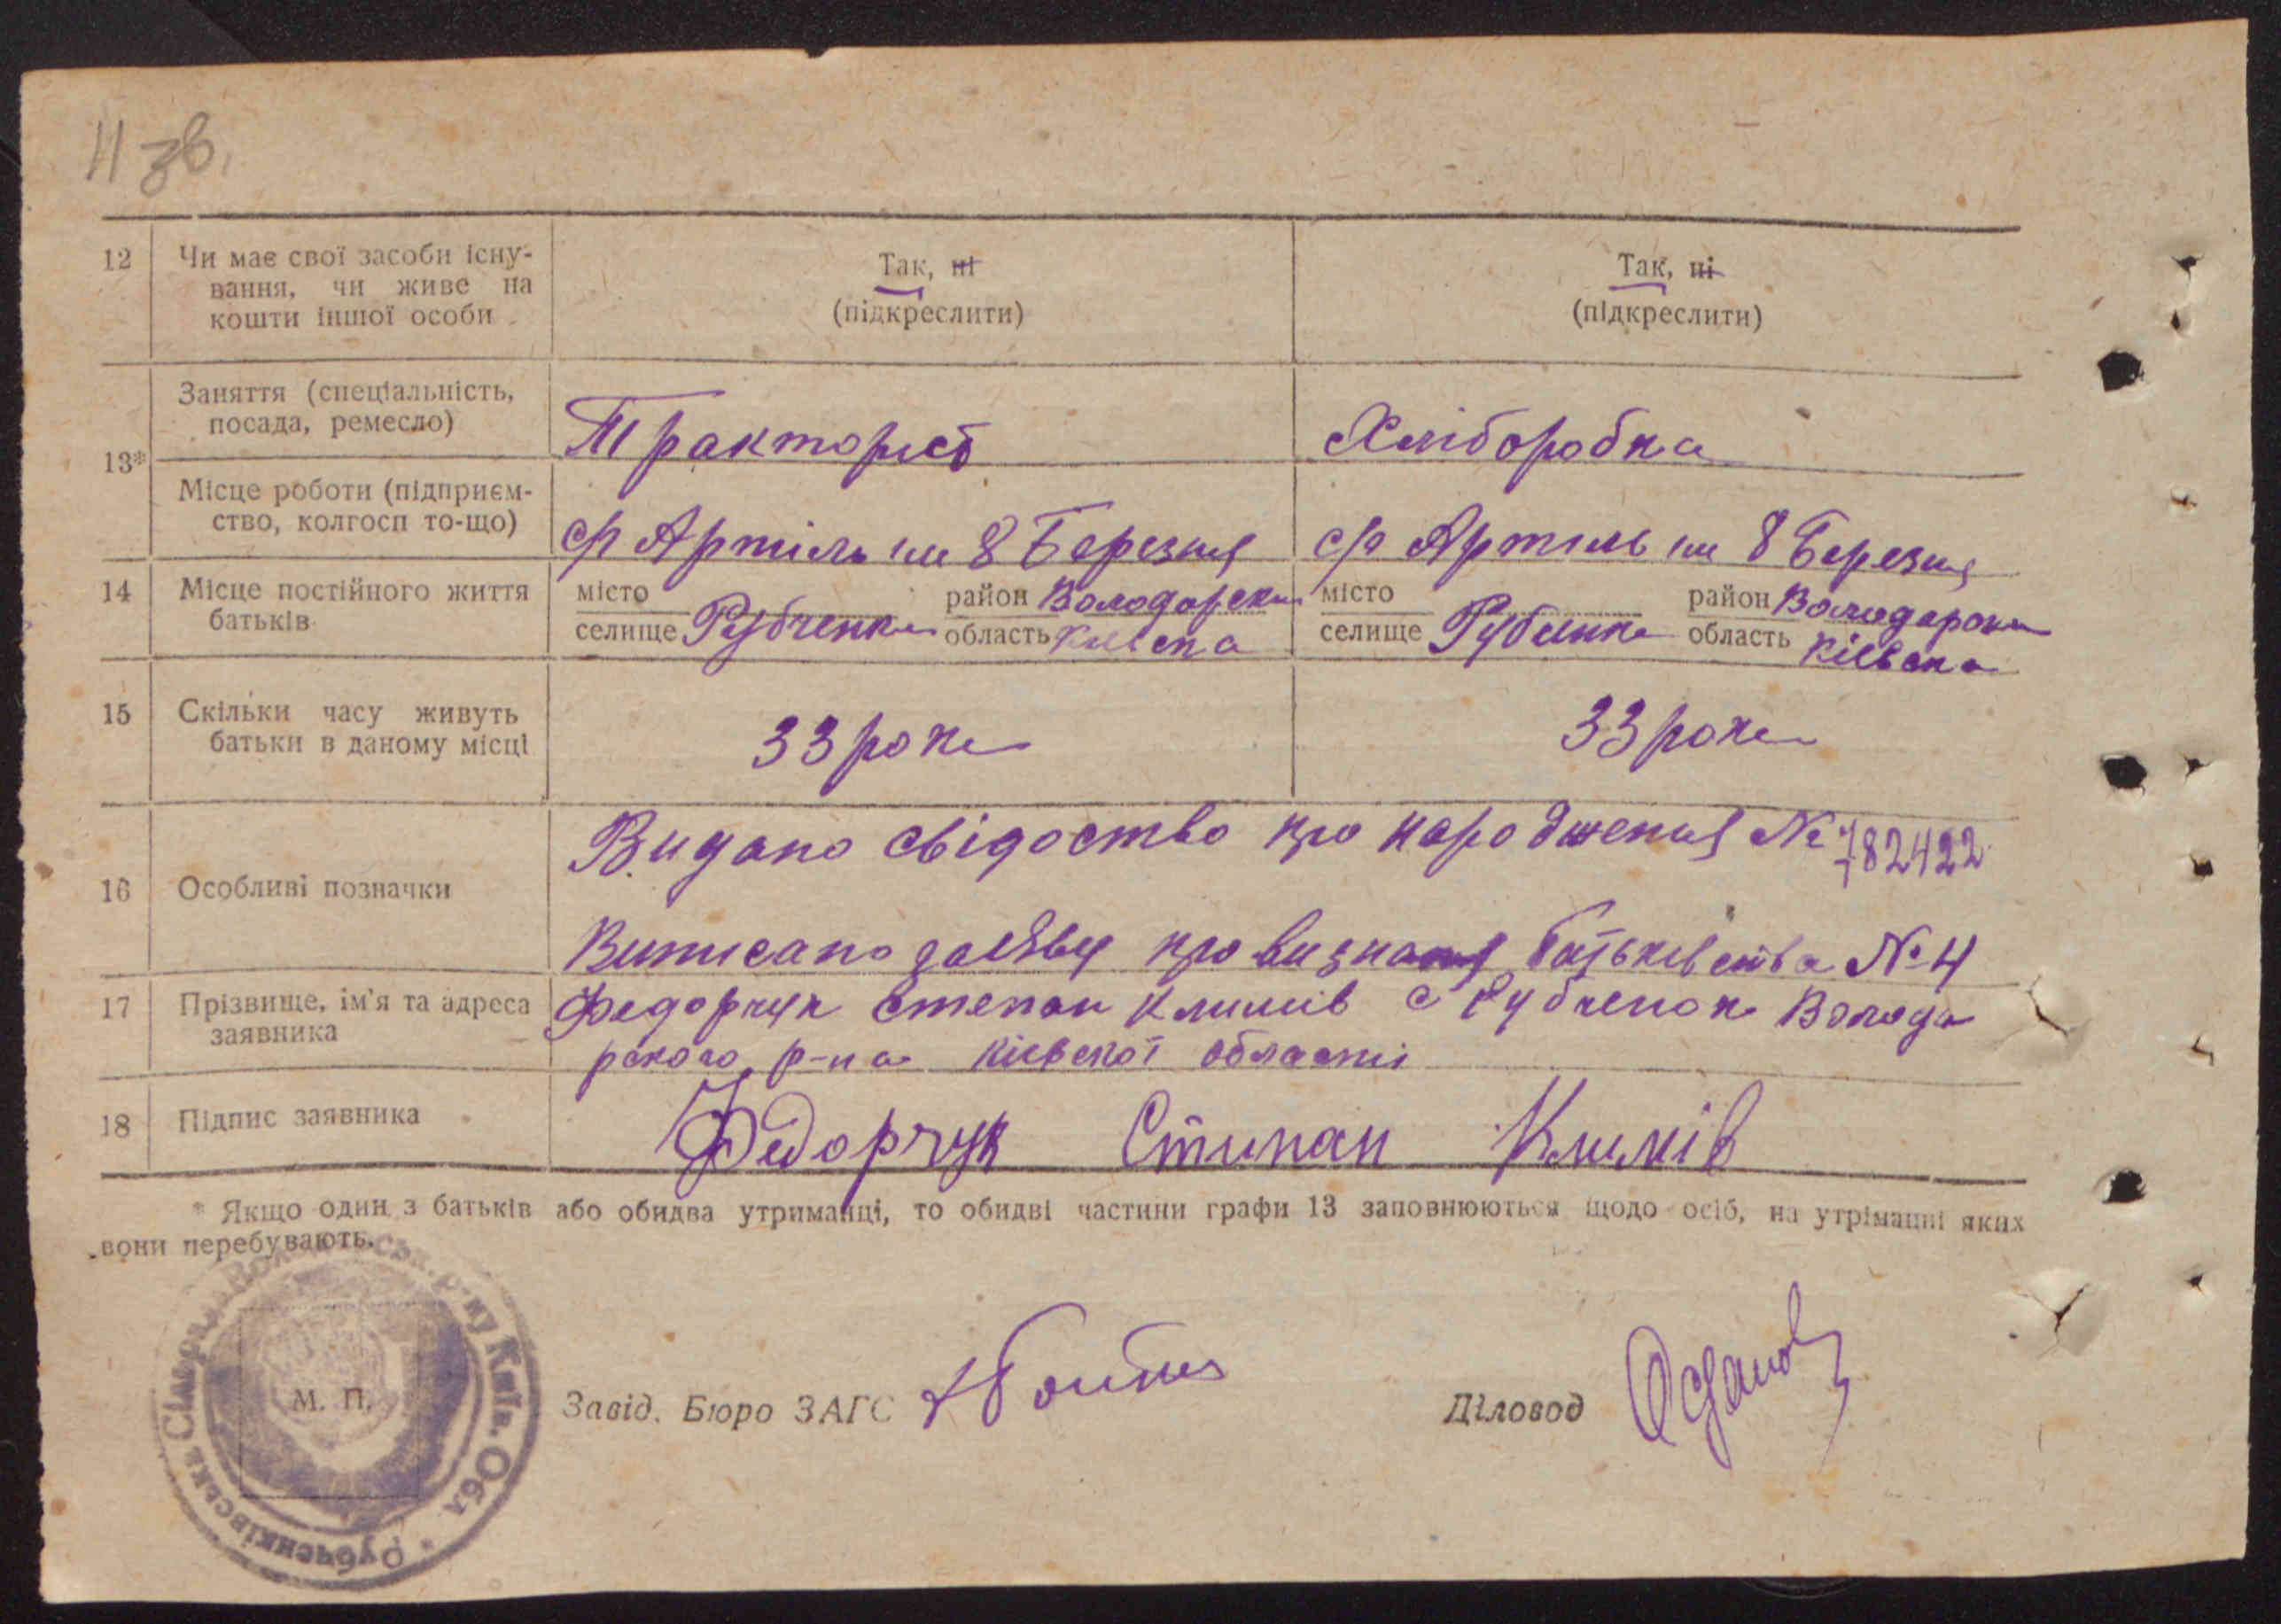 11 зв.
12 Чи має свої засоби існу-
вання, чи живе на
кошти іншої особи
Так, ні
(підкреслити)
Так, ні
(підкреслити)
13*
Заняття (спеціальність,
посада, ремесло)
Тракторист
Хліборобка
Місце роботи (підприєм-
ство, колгосп то-що)
с/г Артіль ім 8 Березня
с/г Артиль ім 8 Березня
14 Місце постійного життя
батьків
місто
селище Рубченки
район Володарски
область Київска
місто
селище Рубченки
район Володарски
область Київска
15 Скільки часу живуть
батьки в даному місці
33 роки
33 роки
16 Особливі позначки
Видано свідоство про народження № 782422
Виписано заяву про визнання батьківства № 4
17 Прізвище, ім'я та адреса
заявника
Федорчук Степан Климів с РубченкиВолода
рского р-на Київскої області
18 Підпис заявника
Федорчук Стипан Климів
* Якщо один з батьків або обидва утриманці, то обидві частини графи 13 заповнюються щодо осіб, на утріманні яких
вони перебувають.
Рубченківська Сільрада Володарськ. р-ну Київ. Обл
М. П.
Завід. Бюро ЗАГС
Діловод